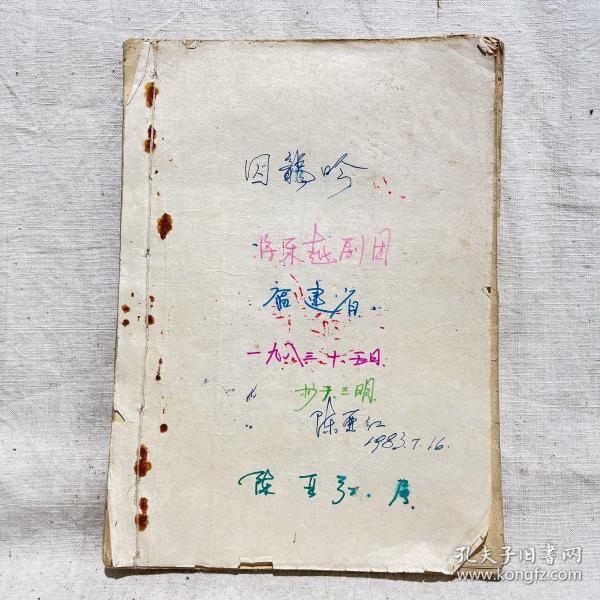 囚龍吟
乐越剧团
福建省
一九八三.十.五日.
抄于三明.
陈亚红
1983.7.16.
陈亚红.
孔夫子旧书网
www.kongfz.com